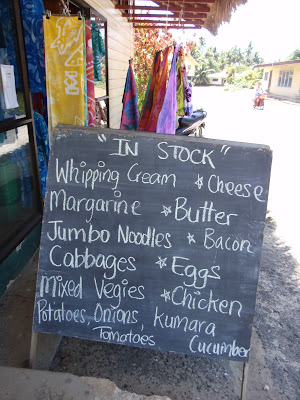 "IN STOCK"
Whipping Cream * Cheese
Margarine * Butter
Jumbo Noodles * Bacon
Cabbages * Eggs
Mixed Vegies * Chicken
Potatoes, Onions, Kumara
Tomatoes Cucumber